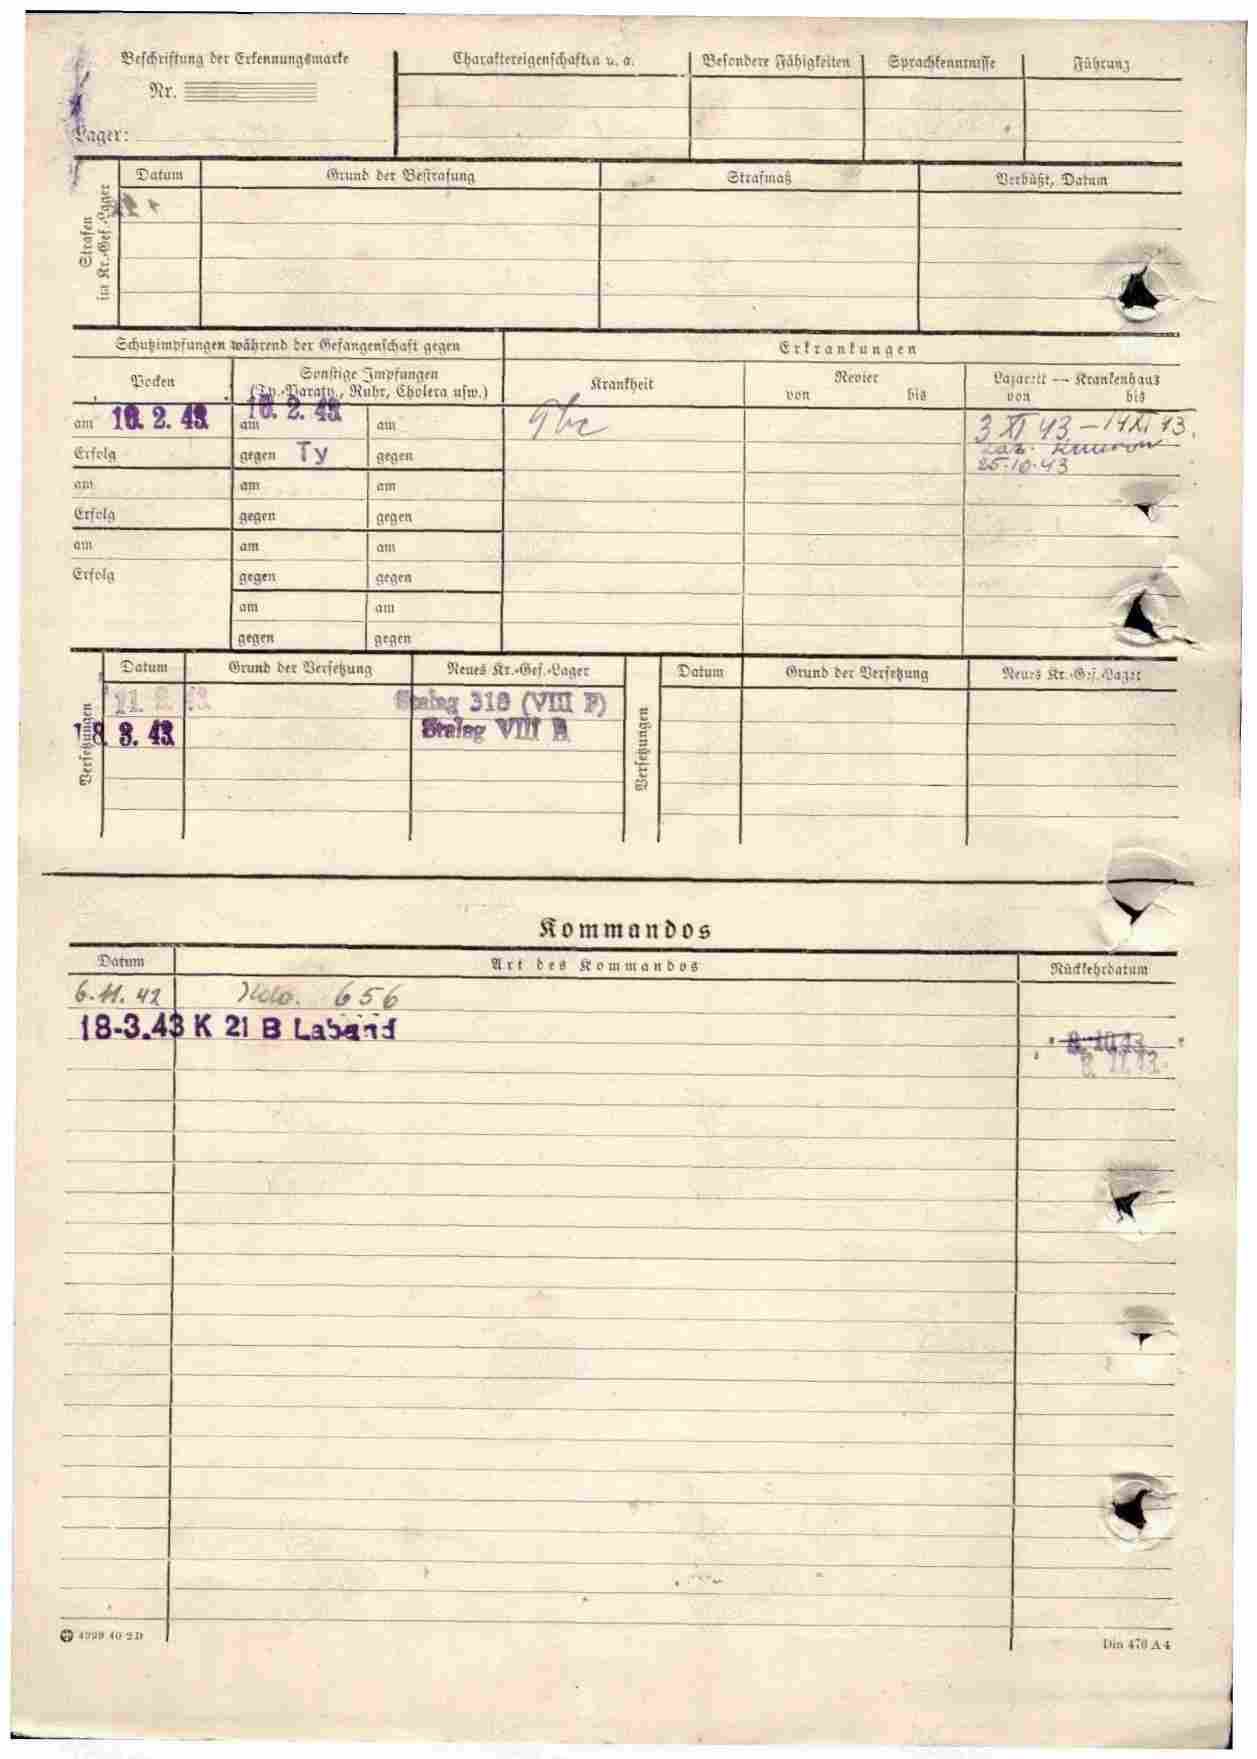 Beschriftung der Erkennungsmarke
Nr.
Lager:
Charaktereigenschaften u. a.
Besondere Fähigkeiten
Sprachkenntnisse
Führung
Strafen
im Kr.-Gef.-Lager
Datum
Grund der Bestrafung
Strafmaß
Verbüßt, Datum
Schutzimpfungen während der Gefangenschaft gegen
Erkrankungen
Pocken
Sonstige Impfungen
(Ty.-Paraty., Ruhr, Cholera usw.)
Krankheit
Revier
von bis
Lazarett — Krankenhaus
von bis
am 16. 2. 43 am 16. 2. 43 am
3 XI 43 – 14 XI 43.
Erfolg gegen Ty gegen
Laz.
25.10.43
am am am
Erfolg gegen gegen
am am am
Erfolg gegen gegen
am am
gegen gegen
Versetzungen
Datum Grund der Versetzung Neues Kr.-Gef.-Lager
11. 2. 43 Stalag 318 (VIII F)
18. 3. 43 Stalag VIII B
Versetzungen
Datum Grund der Versetzung Neues Kr.-Gef.-Lager
Kommandos
Datum Art des Kommandos Rückkehrdatum
6.11.42 Kdo. 656
18-3.43 K 21 B Laband
8. 10. 43
4299 40 2D
Din 476 A4